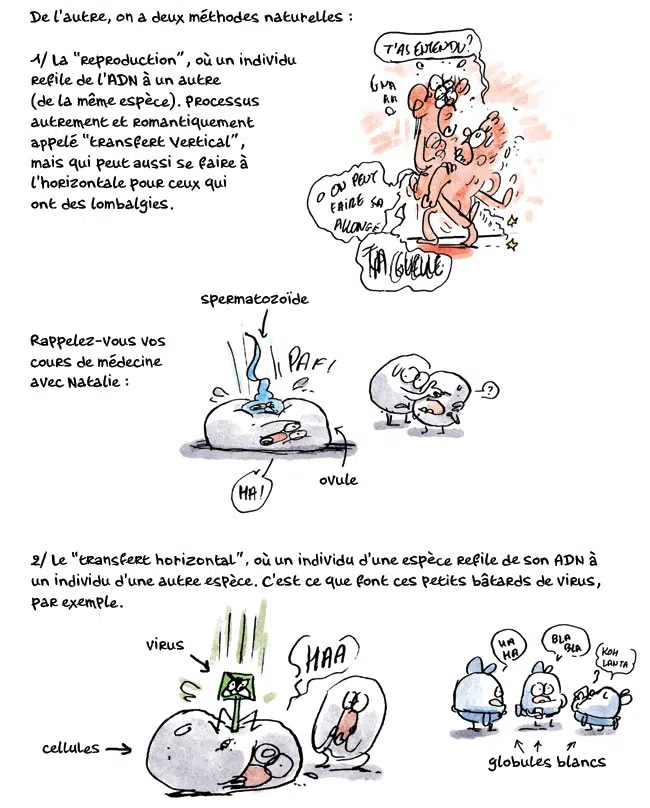 De l'autre, on a deux méthodes naturelles :
1/ La "reproduction", où un individu
refile de l'ADN à un autre
(de la même espèce). Processus
autrement et romantiquement
appelé "transfert vertical",
mais qui peut aussi se faire à
l'horizontale pour ceux qui
ont des lombalgies.
T'AS ENTENDU?
ON PEUT
FAIRE ÇA
ALLONGÉ
TA GUEULE
spermatozoïde
Rappelez-vous vos
cours de médecine
avec Natalie :
PAF!
?
HA!
ovule
2/ Le "transfert horizontal", où un individu d'une espèce refile de son ADN à
un individu d'une autre espèce. C'est ce que font ces petits bâtards de virus,
par exemple.
virus
HAA
cellules
HA
HA
BLA
BLA
KOH
LANTA
globules blancs